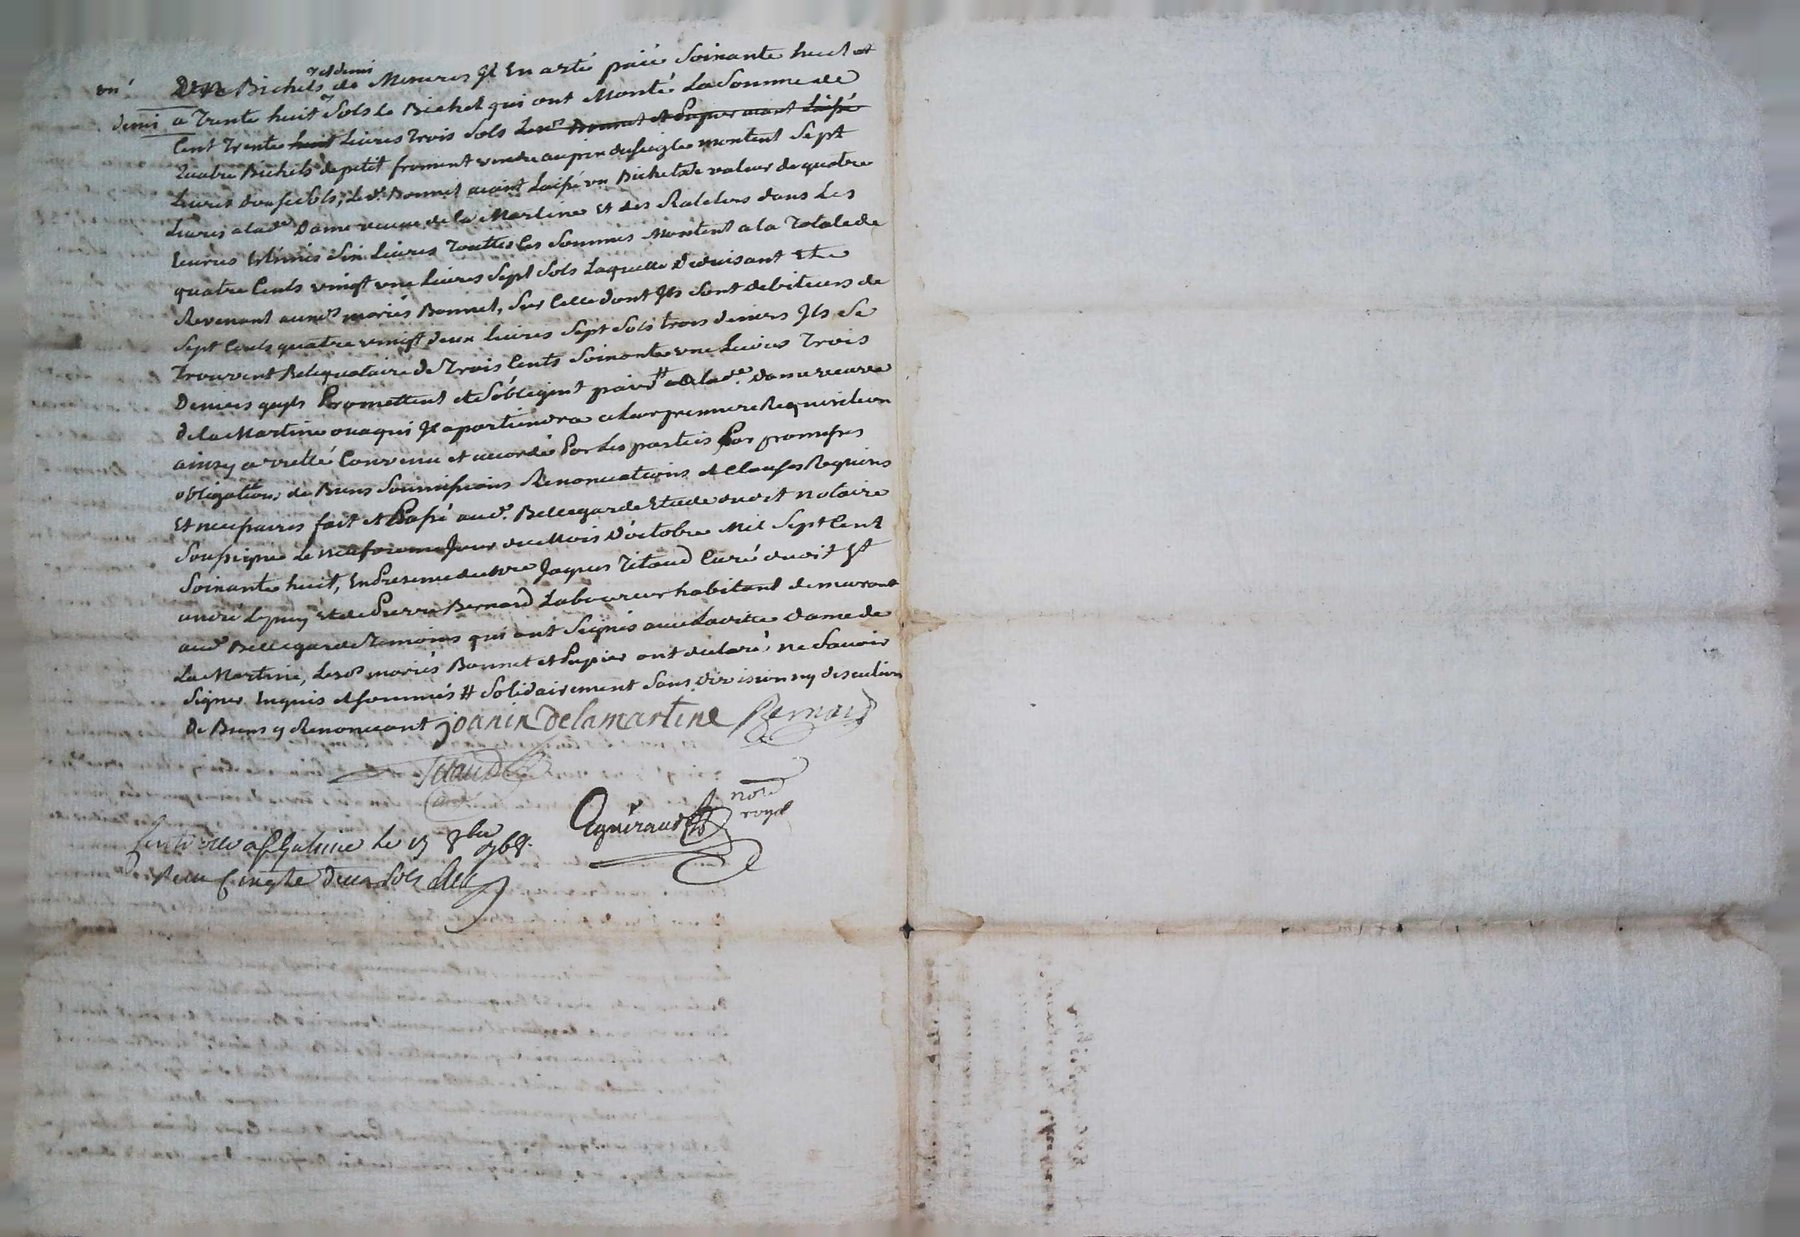 un
demi
Bichets de Mesures Il En a esté paié Soixante huit et
y et demi
a Trente huit Sols Le Bichet qui ont Monté La Somme de
Cent Trente huit Livres Trois Sols Bonnet et Papier aiant Laissé
Quatre Bichets de petit froment vendu au prix du seigle montent Sept
Livres Sols, Led. Bonnet aiant Laissé un Bichet de valeur de quatre
Livres a lad.e Dame veuve de la Martine Et des Rateliers dans Les
Ecuries Estimés Six Livres Toutes Ces Sommes Montent a la Totale de
quatre Cents vingt une Livres Sept Sols Laquelle Deduisant Et
Revenant auxd.s mariés Bonnet, Sur Celle dont Ils Sont debiteurs de
Sept Cents quatre vingt deux Livres Sept Sols trois deniers Ils Se
Trouvent Reliquataire de Trois Cents Soixante une Livres Trois
Deniers quils Promettent et S'obligent paier # a Lad.e Dame veuve
de la Martine ou a qui Il apartiendra a Leur premiere Requisition
ainsy a esté Convenu et accordé Par Les parties Par promesses
obligations de Biens Soumissions Renonciations et Clauses Requises
Et necessaires fait et Passé aud. Bellegarde Etude dudit notaire
Soussigné Le neufvieme Jour du Mois D'octobre Mil Sept Cent
Soixante huit, En Presence de Mre Jaques Titaud Curé dudit St
andré Lepuy Et de Pierre Bernard Laboureur habitant demeurant
aud. Bellegarde Temoins qui ont Signés avec Ladite Dame de
La Martine, Lesd. mariés Bonnet et Papier ont declaré ne Savoir
Signer Enquis et Sommés # Solidairement Sans division ny discution
De Biens y Renonceant joanin Delamartine Bernard
Titaud
curé
Agniraud
not.e
royal
Controllé a St Galmier Le 19 8bre 1768.
Reçu Cinq te Deux Sols